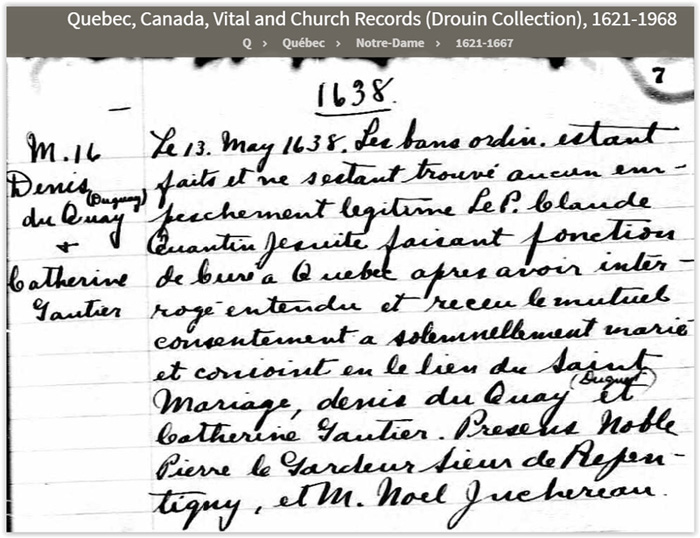 Quebec, Canada, Vital and Church Records (Drouin Collection), 1621-1968
Q > Québec > Notre-Dame > 1621-1667
7
1638.
M. 16
Denis
(Duquay)
du Quay
+
Catherine
Gautier
Le 13. May 1638. Les bans ordin. estant
faits et ne sestant trouvé aucun em-
peschement legitime Le P. Claude
Quantin Jesuite faisant fonction
de Curé a Quebec apres avoir inter-
rogé entendu et receu le mutuel
consentement a solemnellement marié
et conioint en le lien du Saint
Mariage, denis du Quay (Duquet) et
Catherine Gautier. Presens Noble
Pierre le Gardeur Sieur de Repen-
tigny, et M. Noel Juchereau.